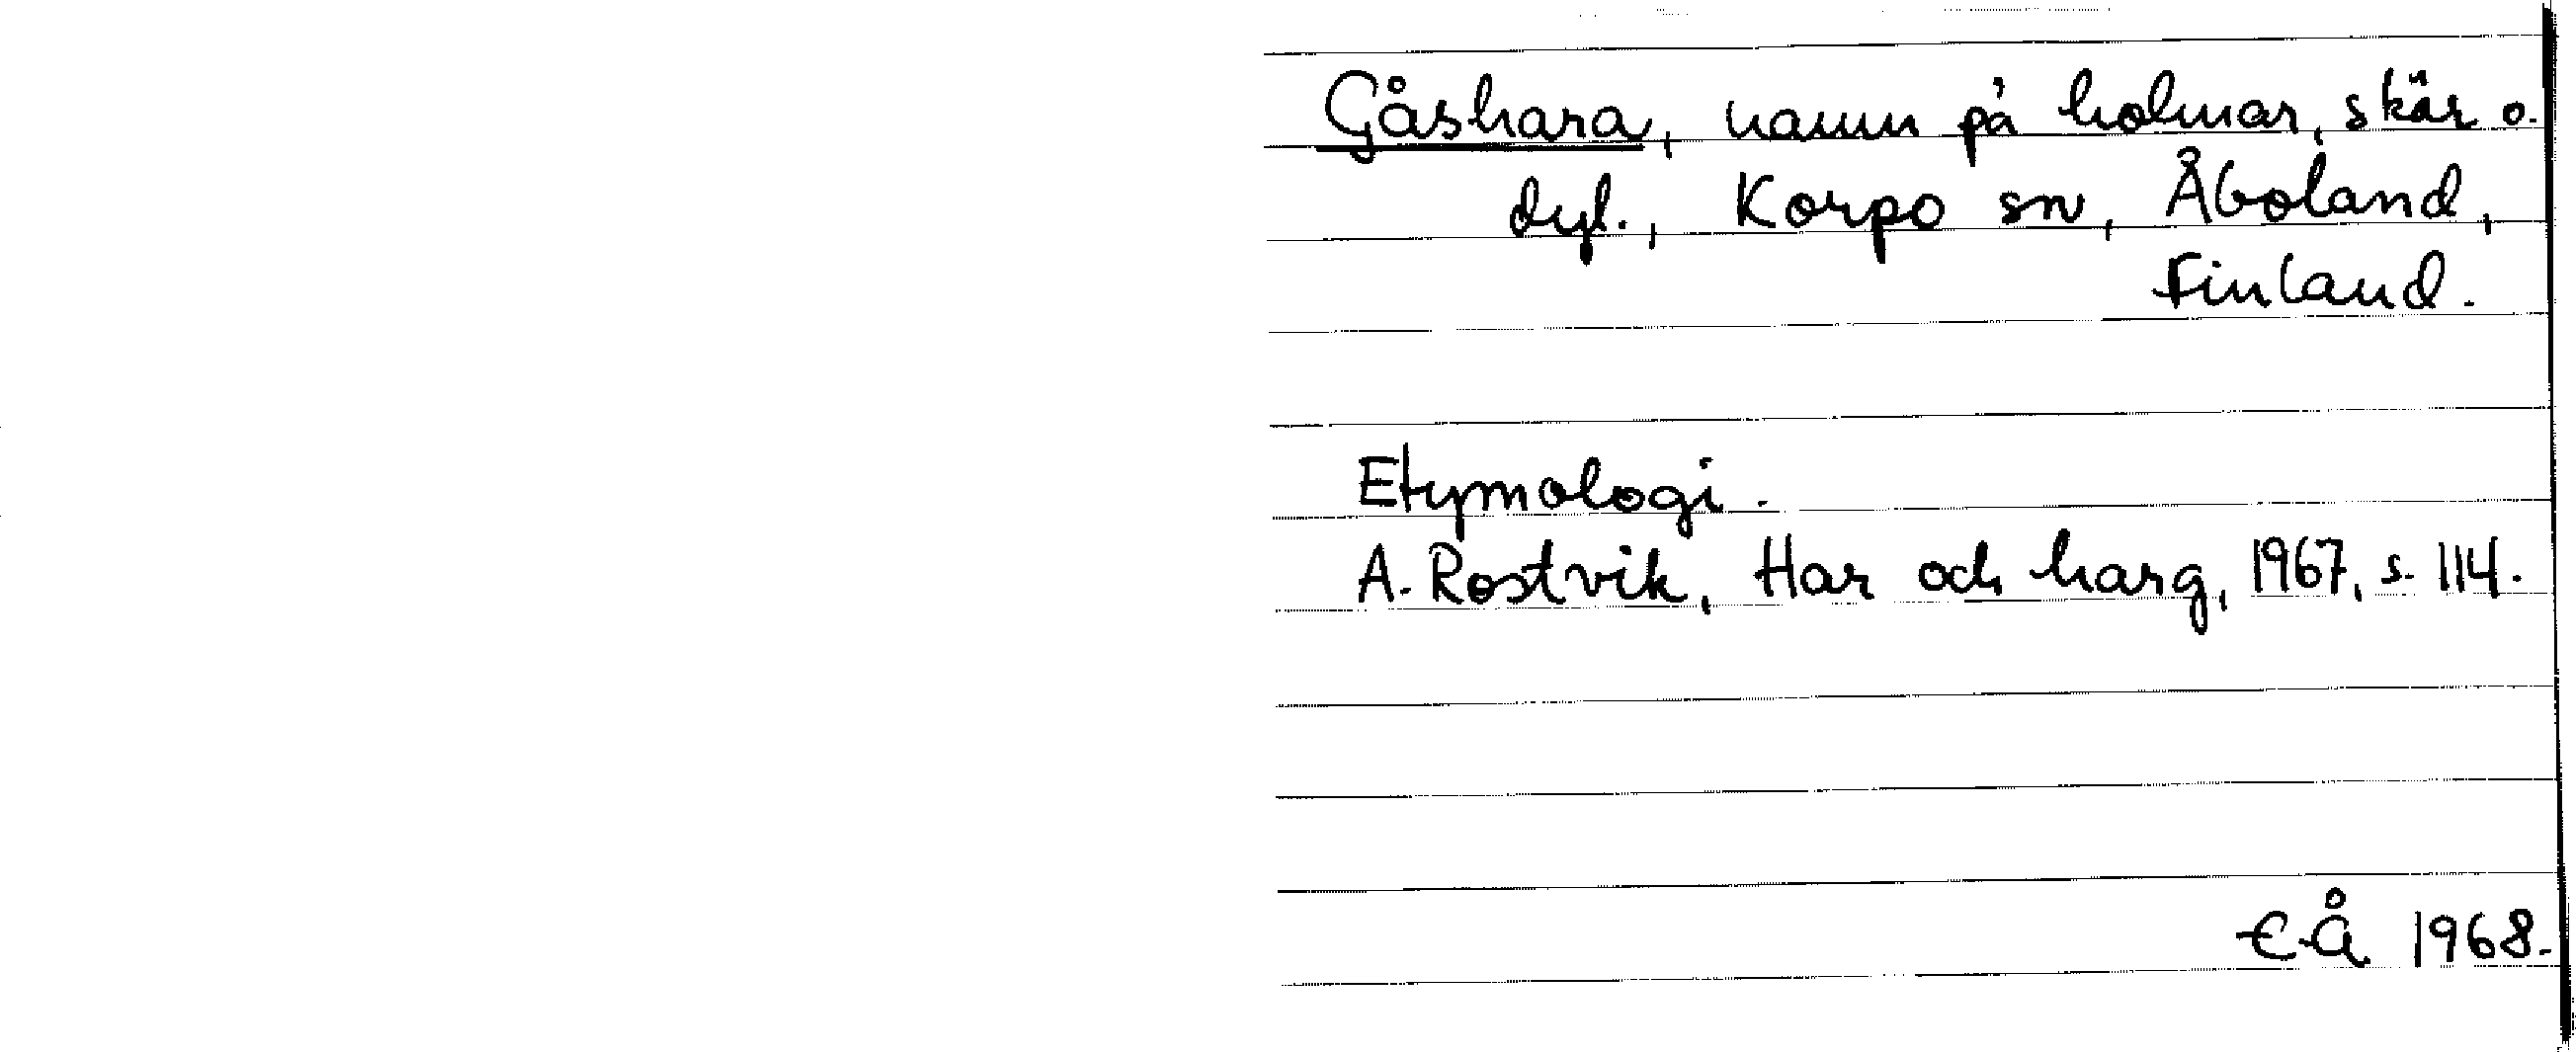 Gåshara, namn på holmar, skär o.
dyl., Korpo sn, Åboland,
Finland.
Etymologi.
A. Rostvik, Har och harg, 1967, s. 114.
EÅ 1968.